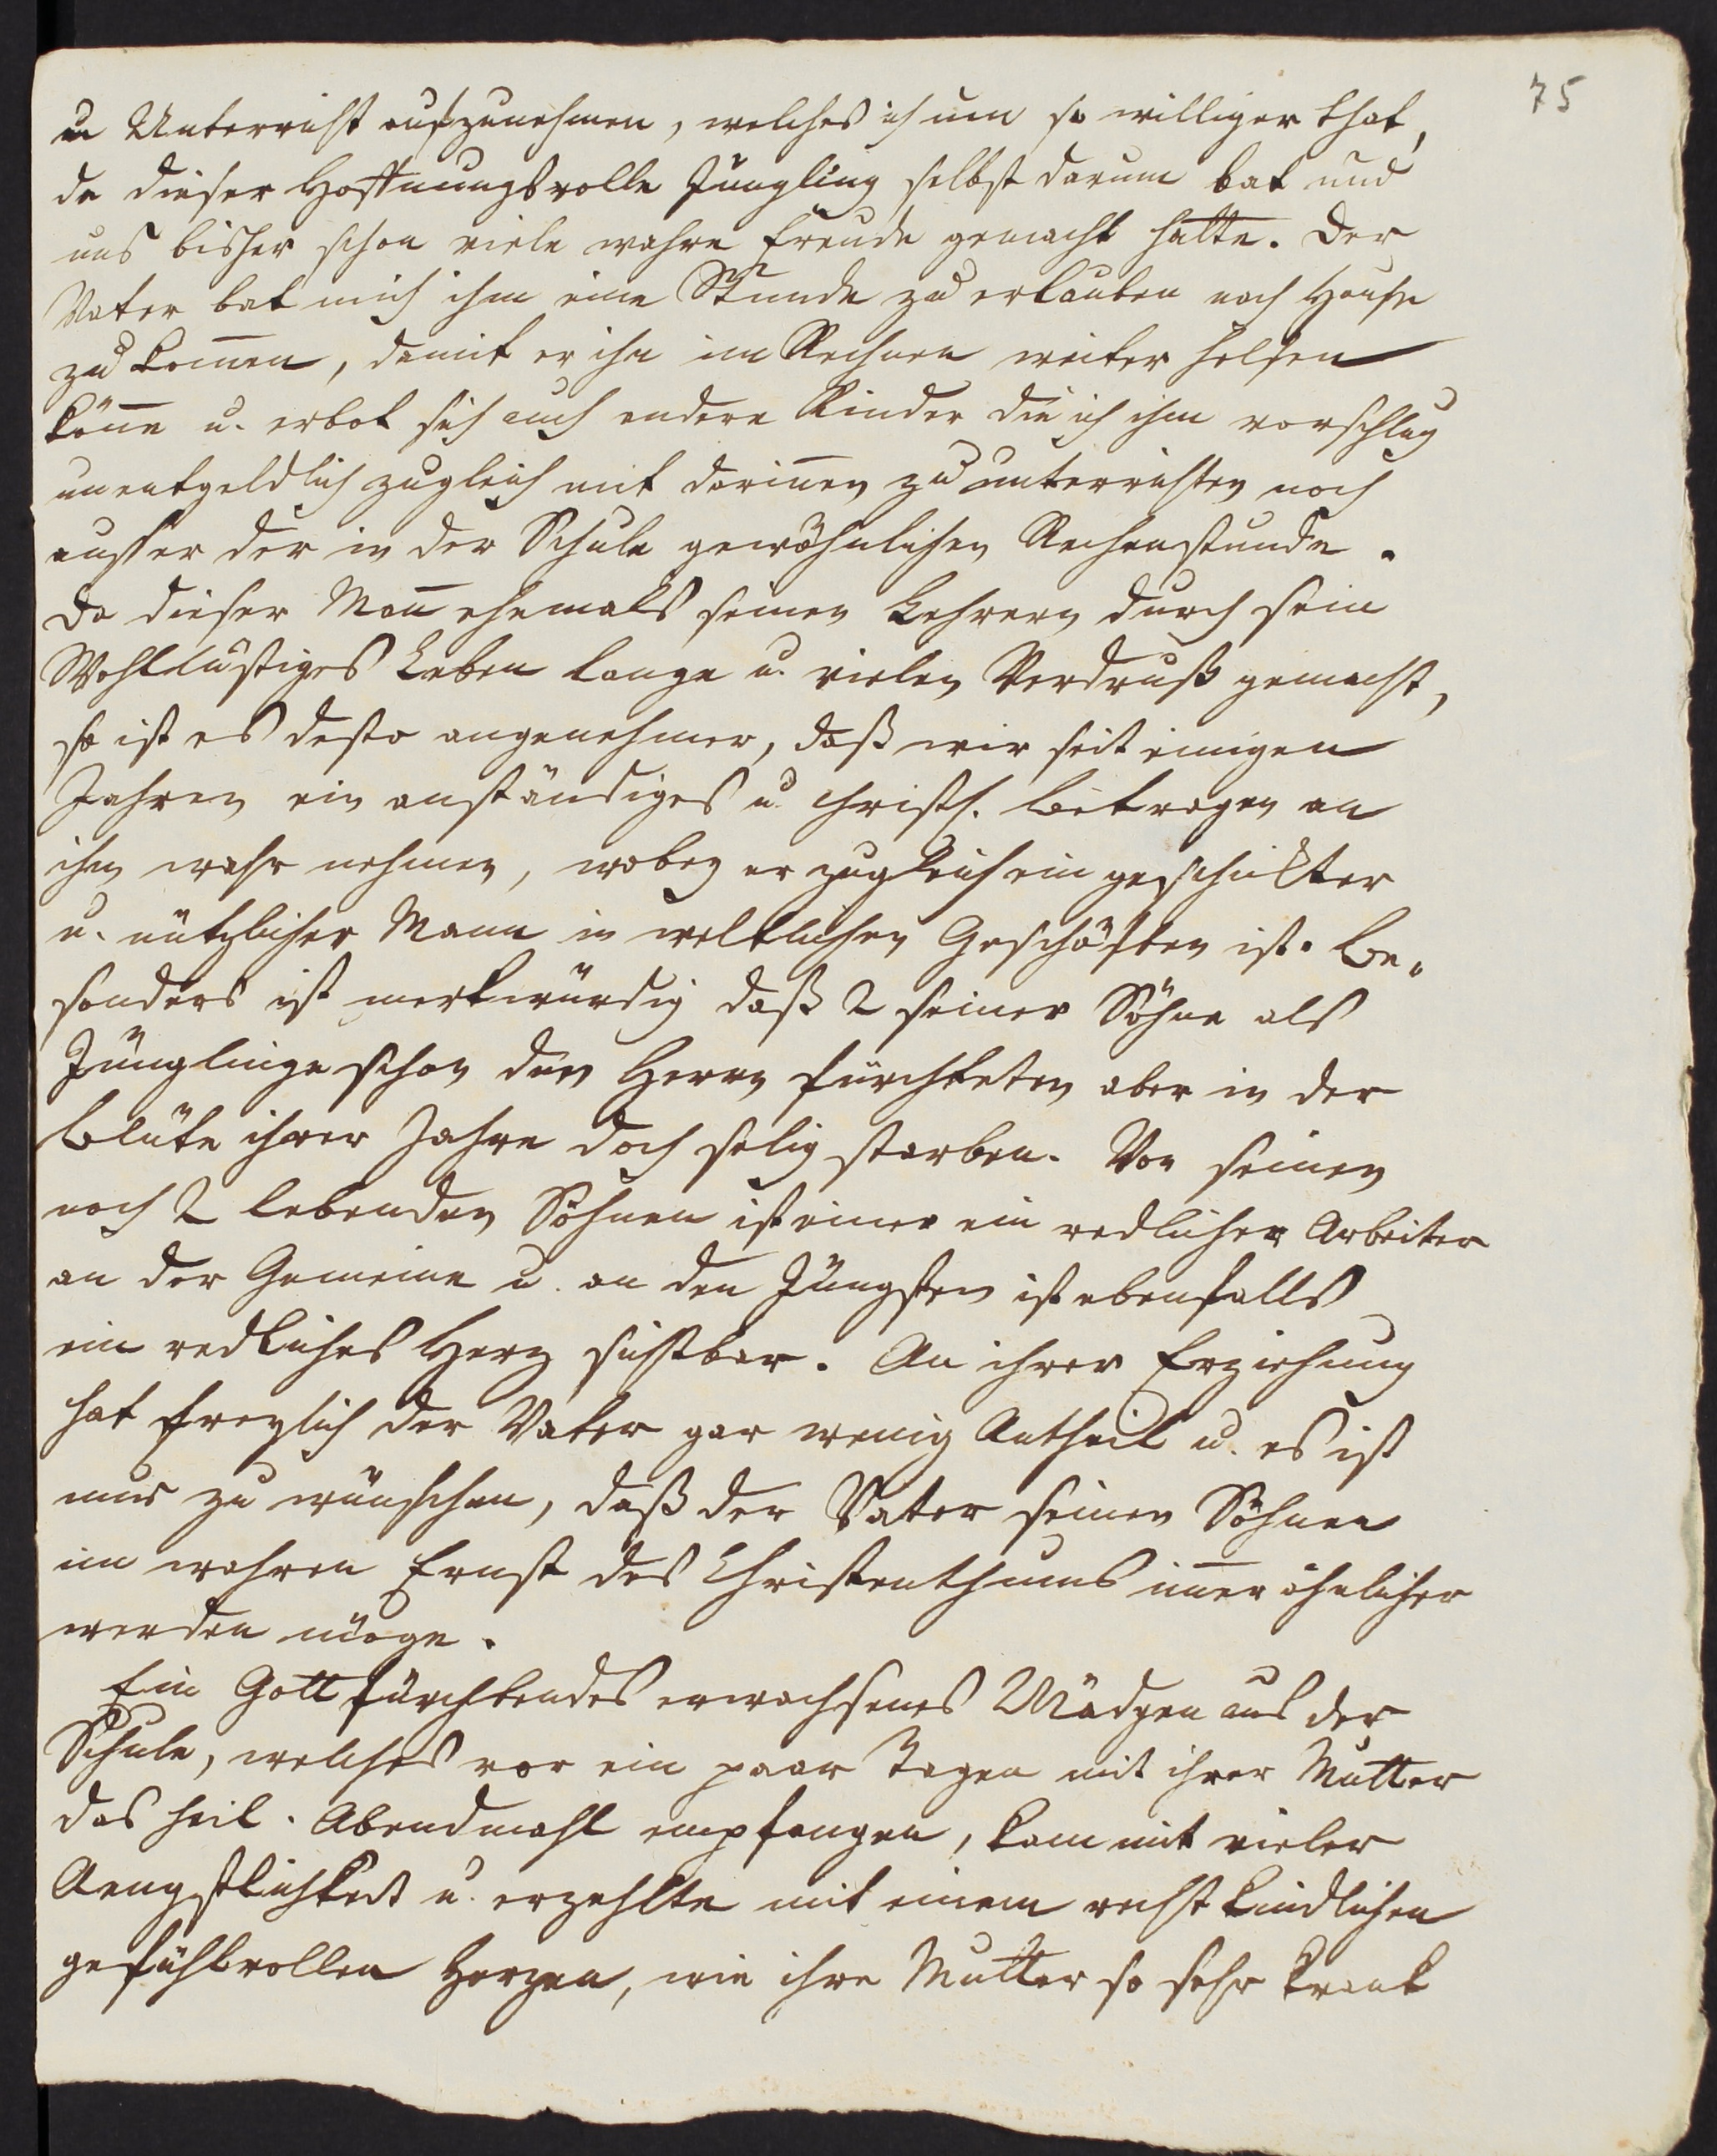 75
u Unterricht aufzunehmen, welches ich um so williger that,
da dieser Hoffnungsvolle Jüngling selbst darum bat und
uns bisher schon viele wahre Freude gemacht hatte. Der
Vater bat mich ihm eine Stunde zu erlauben nach Hause
zu kom̄en, damit er ihn im Rechnen weiter helfen
kön̄e u. erbot sich auch andere Kinder die ich ihm vorschlug
unentgeldlich zugleich mit darin̄en zu unterrichten noch
ausser der in der Schule gewöhnlichen Rechenstunde.
Da dieser Man̄ ehemals seinen Lehrern durch sein
Wohllüstiges Leben lange u. vielen Verdruß gemacht,
so ist es desto angenehmer, daß wir seit einigen
Jahren ein anständiges u. christl. Betragen an
ihm wahr nehmen, wobey er zugleich ein geschikter
u. nützlicher Mann in weltlichen Geschäften ist. Be„
sonders ist merkwürdig daß 2 seiner Söhne als
Jünglinge schon den Herrn fürchteten aber in der
Blüte ihrer Jahre doch selig starben. Von seinen
noch 2 lebenden Söhnen ist einer ein redlicher Arbeiter
an der Gemeine u. an den Jüngsten ist ebenfalls
ein redliches Herz sichtbar. An ihrer Erziehung
hat freylich der Vater gar wenig Antheil u. es ist
nur zu wünschen, daß der Vater seinen Söhnen
im wahren Ernst des Christenthums im̄er ähnlicher
werden möge.
Ein Gott fürchtendes erwachsenes Mädgen aus der
Schule, welches vor ein paar Tagen mit ihrer Mutter
das heil. Abendmahl empfangen, kam mit vieler
Aengstlichkeit u. erzehlte mit einem recht kindlichen
gefühlvollen Herzen, wie ihre Mutter so sehr krank